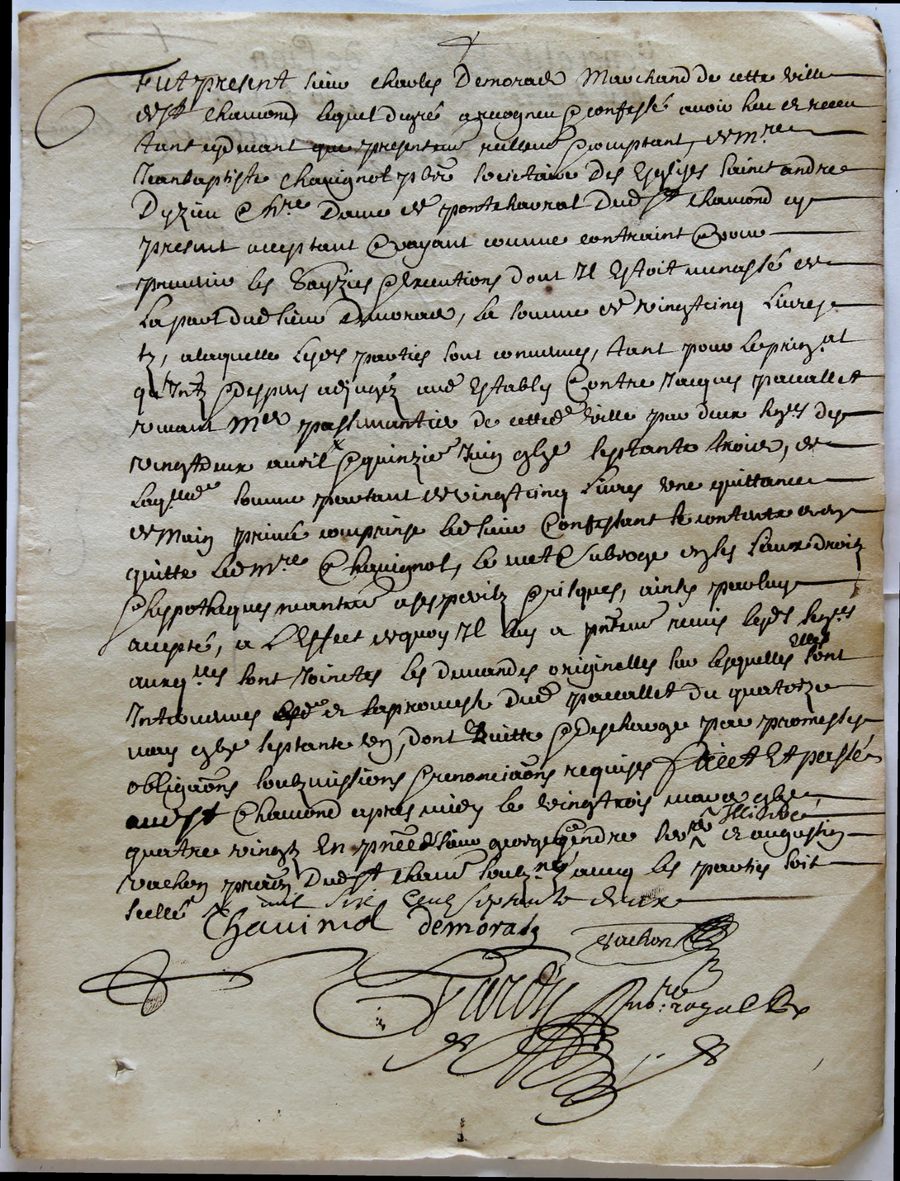 Fut present sieur Charles Demorade Marchand de cette ville
de St Chamond lequel de gré a recogneu & confessé avoir heu et receu
tant cydevant que presentem^t reellem^t & comptant, de m^re
Jean baptiste Chavignot p^bre societaire Des Esglises sainct andre
D'yzieu & n^re Dame de pont havrat Dud St Chamond cy
present acceptant & payant comme contraint & pour
prevenir les sayzies & executions dont Il Estoit menassé de
La part dud sieur demorade, la somme de vingtcinq Livres
tz, a laquelle Lesd parties sont convenues, tant pour le prin^al
qu'Intz & despens adjugéz aud Estably Contre Jacques pacallet
vivant M^e passmantier de cetted^e ville par deux des
vingtdeux avril & quinzie^e Juin gbje septante trois, de
Laq^lle somme partant de vingtcinq Livres une quittance
de main privée comprinse led sieur Confessant se contente et en
quitte led m^re Chavignot, le met & subroge en ses lieux droitz
& hypotheques a ses perilz & risques, ainsy par luy
accepté, a L'Effect de quoy Il luy a p^ntem^t remis lesd
auxq^lles sont Jointes les demandes originelles sur lesquelles Elles sont
Intervenues et la promesse dud pacallet du quatorze
mars gbje septante un, dont quitte & descharge par promesses
obliga^ons soubzmissions & renoncia^ons requises faict Et passé
aud St Chamond apres midy le vingtrois mars gbje
quatre vingtz En p^nce de sieur george gendre et augustin
vachon Dud St Cham^d soubz^nés avecq les parties soit
scellé
mil six Cens septante deux
Chavinol demorade vachon
no^re royal